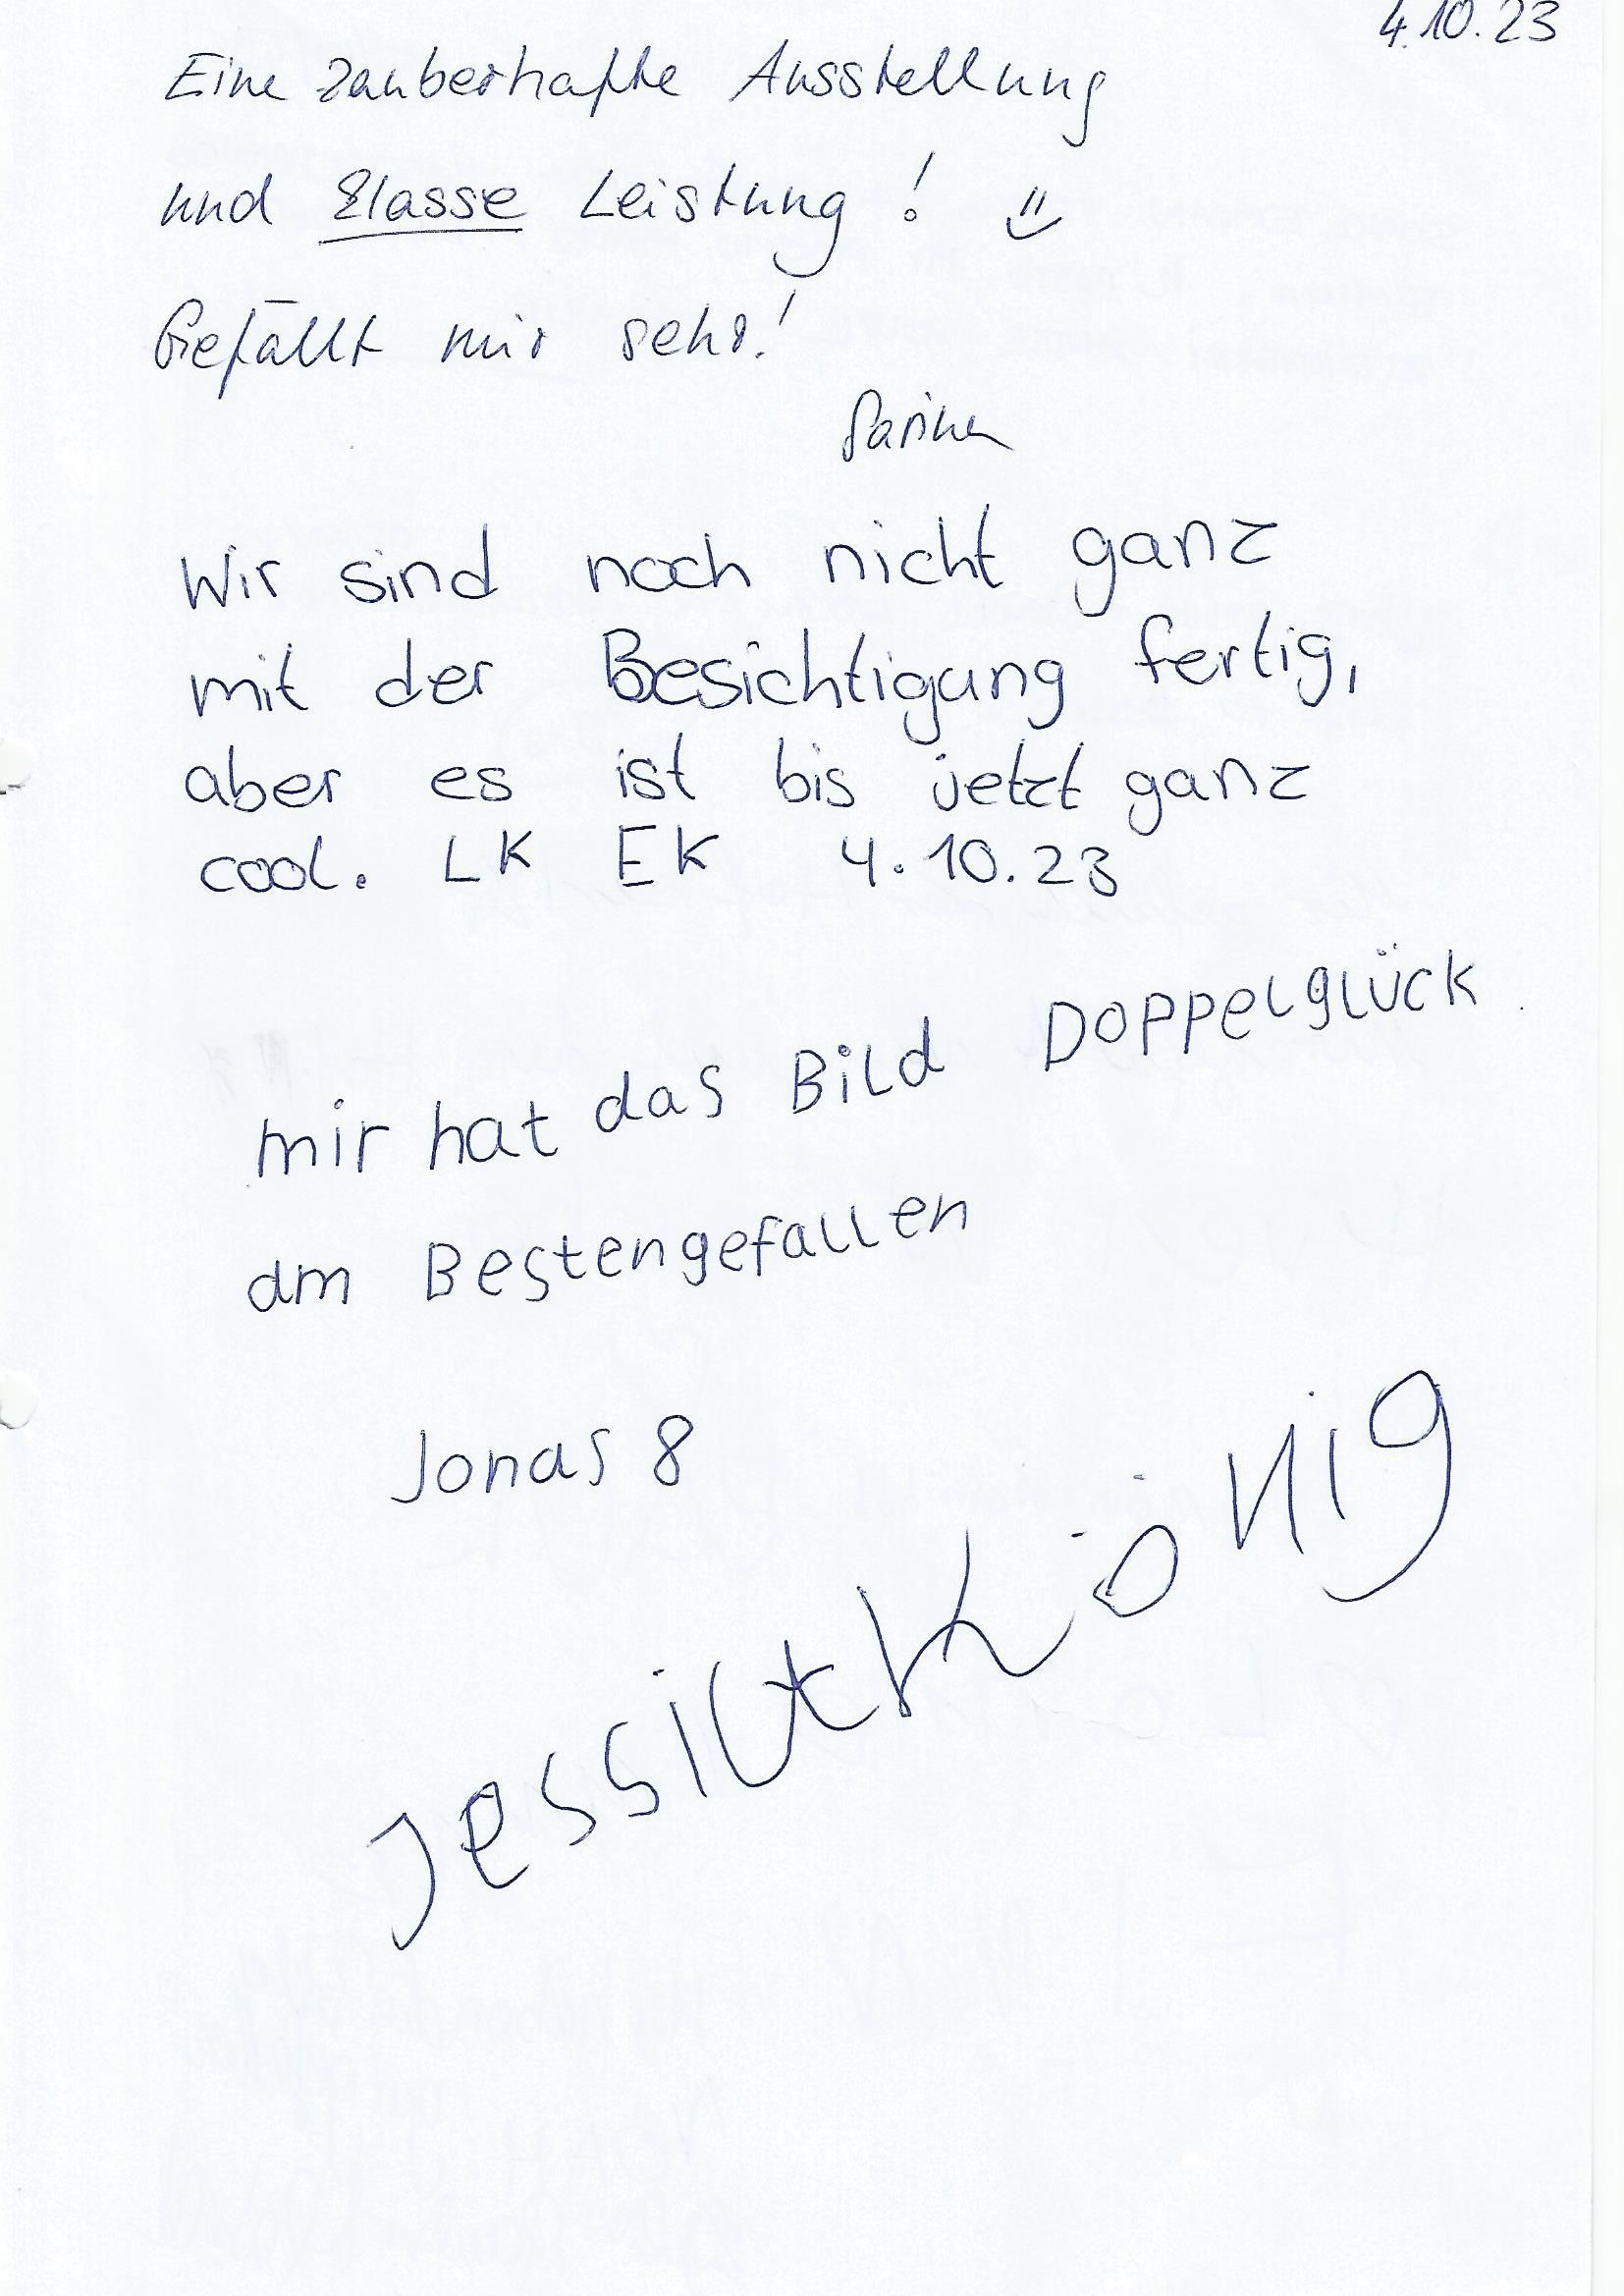 4.10.23
Eine zauberhafte Ausstellung
und Klasse Leistung!
Gefällt mir sehr!
Wir sind noch nicht ganz
mit der Besichtigung fertig,
aber es ist bis jetzt ganz
cool. LK EK 4.10.23
mir hat das Bild Doppelglück
am Bestengefallen
Jonas 8
Jessica König